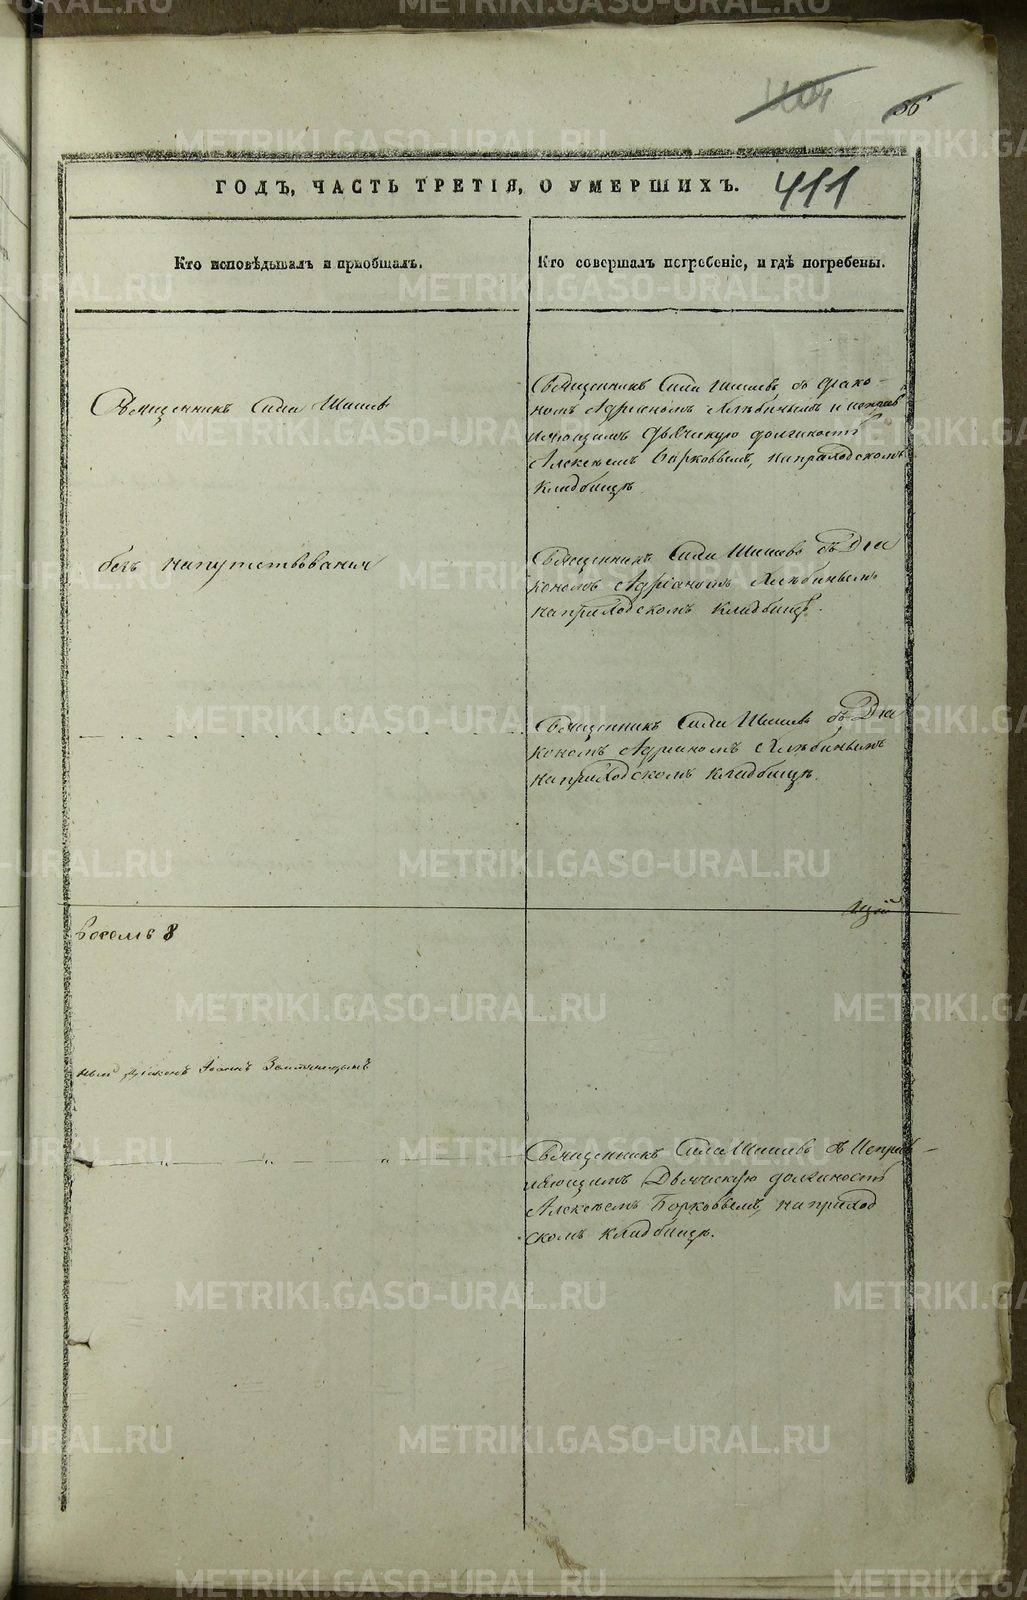 56
ГОДЪ, ЧАСТЬ ТРЕТІЯ, О УМЕРШИХЪ.
411
Кто исповѣдывалъ и пріобщалъ.
Кто совершалъ погребеніе, и гдѣ погребены.
Священникъ Сила Шишев
Священникъ Сила Шишевъ съ діако-
номъ Адріаномъ Хлѣбинымъ и исправ
ляющимъ дьяческую должность
Алексѣемъ Борковымъ, на приходскомъ
кладбищѣ
безъ напутствованія
Священникъ Сила Шишевъ съ Діа
кономъ Адріаномъ Хлѣбинымъ
на приходскомъ кладбищѣ.
Священникъ Сила Шишевъ съ Діа
кономъ Адріаномъ Хлѣбинымъ
на приходскомъ кладбищѣ.
Восемь 8
ный діаконъ Іоаннъ
Священникъ Сила Шишевъ съ Исправ-
ляющимъ Дьяческую должность
Алексѣемъ Борковымъ, на приход
скомъ кладбищѣ.
METRIKI.GASO-URAL.RU